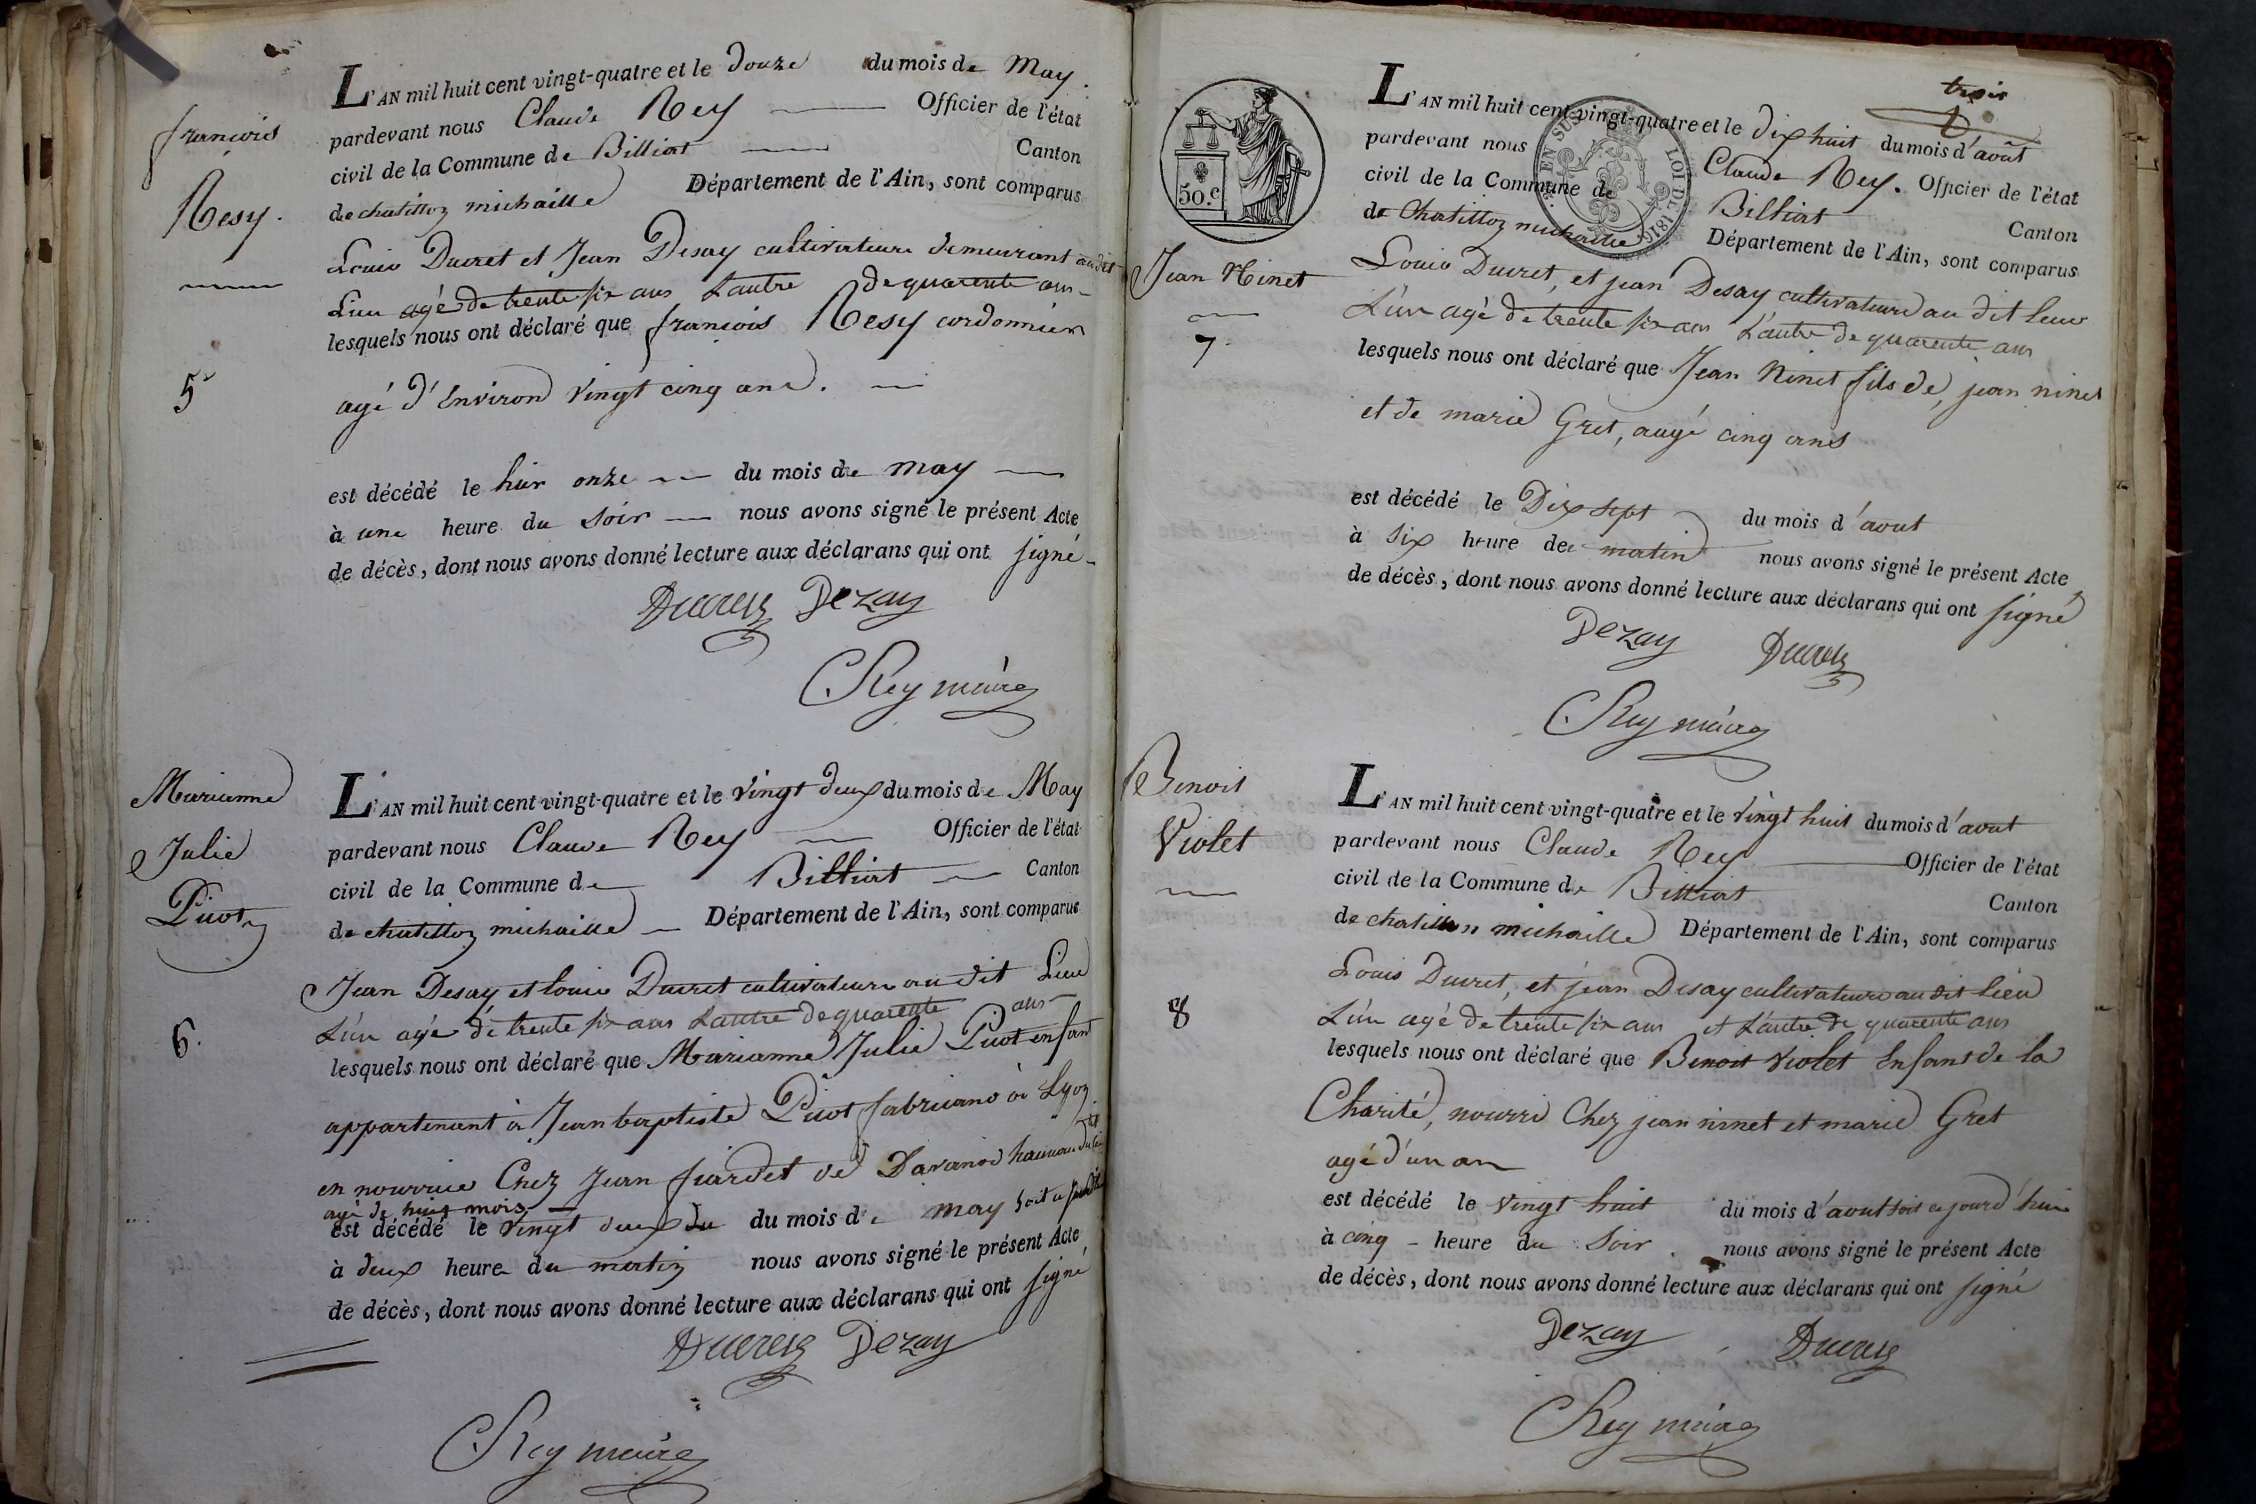 françois
Resy.
5
L'AN mil huit cent vingt-quatre et le douze du mois de May.
pardevant nous Claude Rey Officier de l'état
civil de la Commune de Billiat Canton
de chatillon michaille Département de l'Ain, sont comparus
Louis Ducret et Jean Desay cultivateurs demeurant audit
Lieu agé de trente six ans L'autre de quarente ans
lesquels nous ont déclaré que françois Resy cordonnier
agé d'Environ vingt cinq ans.
est décédé le hier onze du mois de may
à une heure du soir nous avons signé le présent Acte
de décès, dont nous avons donné lecture aux déclarans qui ont signé
Ducret Dezay
C Rey maire
Marianne
Julie
Picot
6.
L'AN mil huit cent vingt-quatre et le vingt deux du mois de May
pardevant nous Claude Rey Officier de l'état
civil de la Commune de Billiat Canton
de chatillon michaille Département de l'Ain, sont comparus
Jean Desay et louis Ducret cultivateurs au dit Lieu
L'un agé de trente six ans L'autre de quarente ans
lesquels nous ont déclaré que Marianne Julie Picot enfant
appartenant à Jean baptiste Picot fabricand à Lyon
en nourrice Chez Jean fiardet de Davanod hameau
agé de huit mois
est décédé le vingt deux du mois de may soit ce
à deux heure du matin nous avons signé le présent Acte
de décès, dont nous avons donné lecture aux déclarans qui ont signé
Ducret Dezay
C Rey maire
trois
50.c
EN SUS LOI DE 1816
Jean Ninet
7
L'AN mil huit cent vingt-quatre et le dix huit du mois d'août
pardevant nous Claude Rey. Officier de l'état
civil de la Commune de Billiat Canton
de Chatillon michaille Département de l'Ain, sont comparus
Louis Ducret, et jean Desay cultivateurs au dit lieu
L'un agé de trente six ans L'autre de quarente ans
lesquels nous ont déclaré que Jean Ninet fils de, jean ninet
et de marie Gret, augé cinq ans
est décédé le Dix sept du mois d'aout
à six heure de matin nous avons signé le présent Acte
de décès, dont nous avons donné lecture aux déclarans qui ont signé
Dezay Ducret
C Rey maire
Benoit
Violet
8
L'AN mil huit cent vingt-quatre et le vingt huit du mois d'aout
pardevant nous Claude Rey Officier de l'état
civil de la Commune de Billiat Canton
de chatillon michaille Département de l'Ain, sont comparus
Louis Ducret, et jean Desay cultivateurs au dit lieu
L'un agé de trente six ans et L'autre de quarente ans
lesquels nous ont déclaré que Benoit Violet Enfant de la
Charité, nourri Chez jean ninet et marie Gret
agé d'un an
est décédé le vingt huit du mois d'aout soit ce jourd'hui
à cinq heure du soir. nous avons signé le présent Acte
de décès, dont nous avons donné lecture aux déclarans qui ont signé
Dezay Ducret
C Rey maire